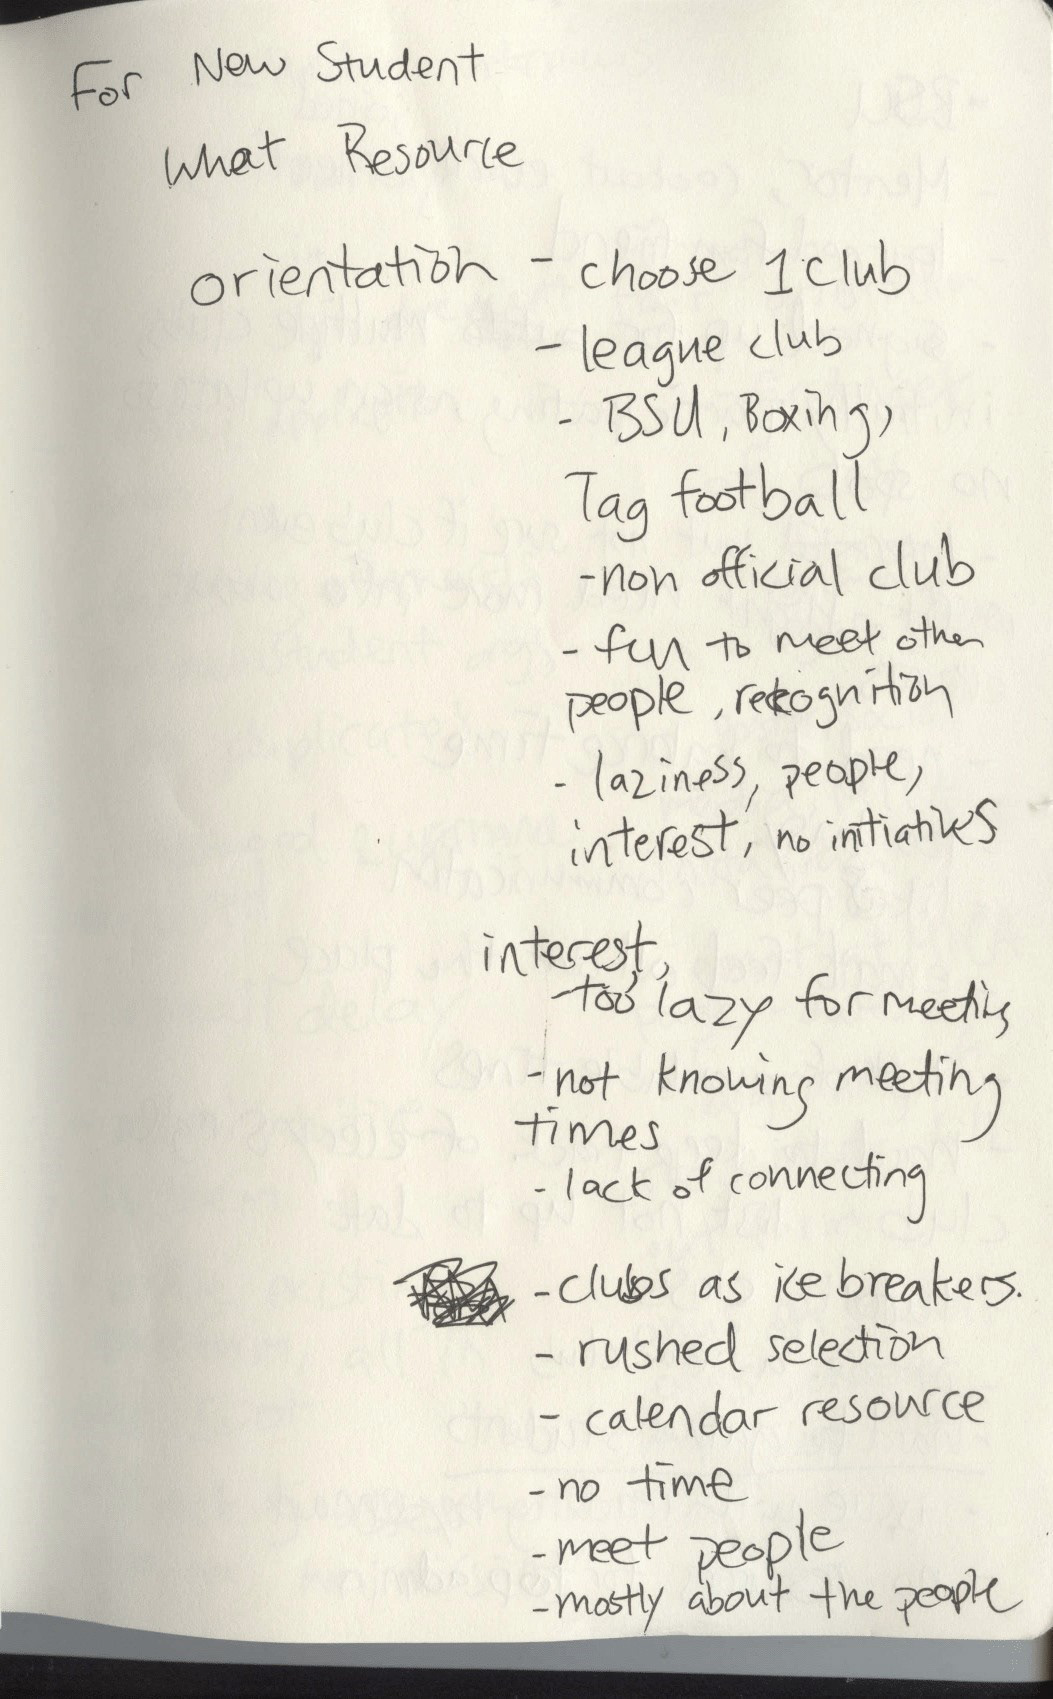 For New Student
What Resource
orientation - choose 1 club
- league club
- BSU, Boxing,
Tag football
- non official club
- fun to meet other
people, rekognition
- laziness, people,
interest, no initiatives
interest,
- too lazy for meeting
- not knowing meeting
times
- lack of connecting
- clubs as ice breakers.
- rushed selection
- calendar resource
- no time
- meet people
- mostly about the people